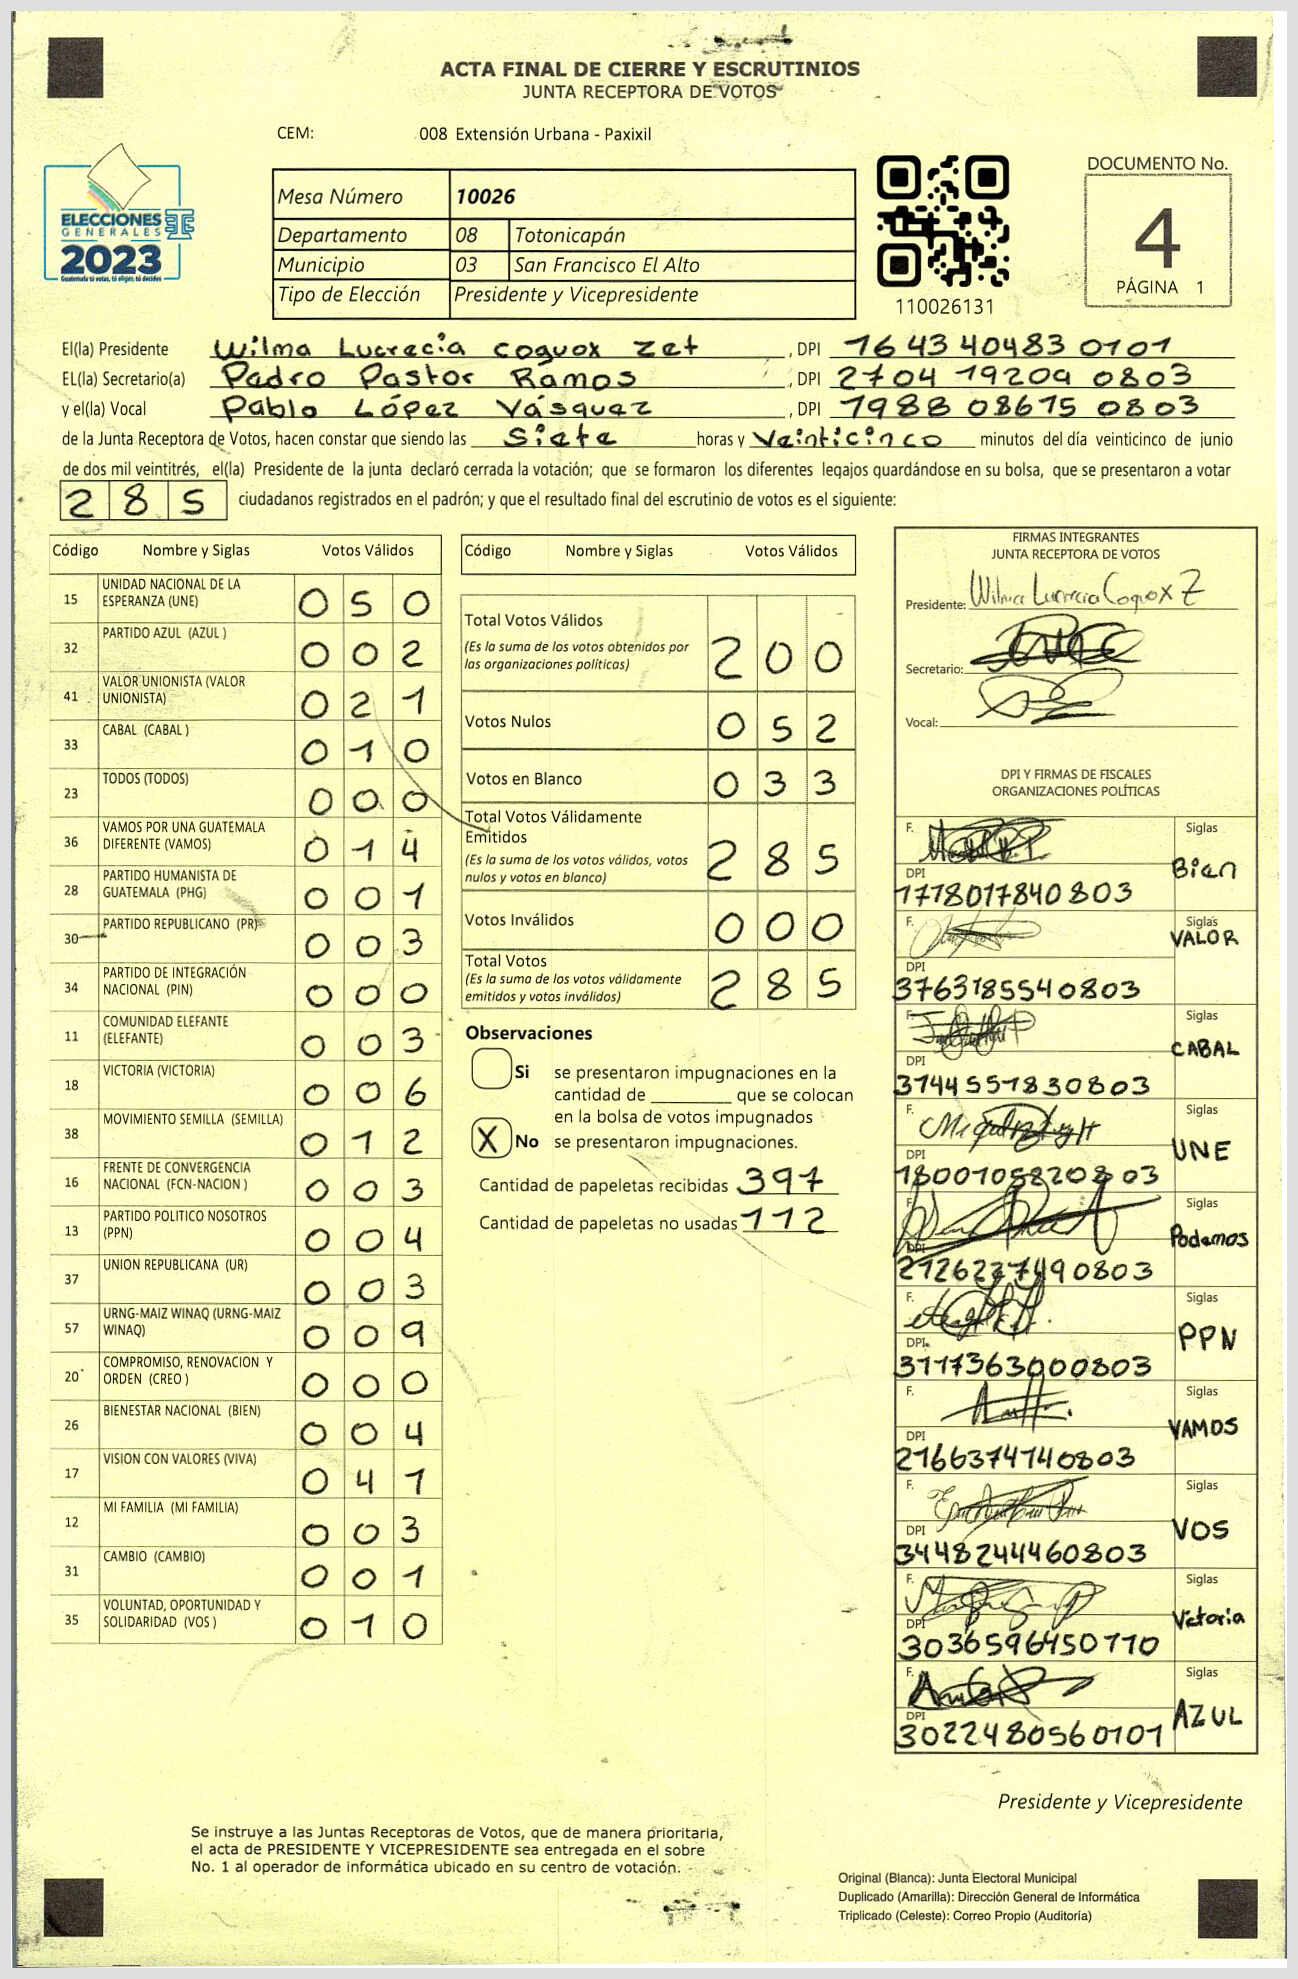 ACTA FINAL DE CIERRE Y ESCRUTINIOS
JUNTA RECEPTORA DE VOTOS
CEM: 008 Extensión Urbana - Paxixil
ELECCIONES
GENERALES
2023
Guatemala tú votas, tú eliges, tú decides
Mesa Número 10026
Departamento 08 Totonicapán
Municipio 03 San Francisco El Alto
Tipo de Elección Presidente y Vicepresidente
110026131
DOCUMENTO No.
4
PÁGINA 1
El(la) Presidente Wilma Lucrecia Coguox Zet , DPI 1643404830101
EL(la) Secretario(a) Pedro Pastor Ramos , DPI 2704 19209 0803
y el(la) Vocal Pablo López Vásquez , DPI 1988 08615 0803
de la Junta Receptora de Votos, hacen constar que siendo las Siete horas y Veinticinco minutos del día veinticinco de junio
de dos mil veintitrés, el(la) Presidente de la junta declaró cerrada la votación; que se formaron los diferentes legajos guardándose en su bolsa, que se presentaron a votar
285 ciudadanos registrados en el padrón; y que el resultado final del escrutinio de votos es el siguiente:
Código Nombre y Siglas Votos Válidos
15 UNIDAD NACIONAL DE LA ESPERANZA (UNE) 0 5 0
32 PARTIDO AZUL (AZUL ) 0 0 2
41 VALOR UNIONISTA (VALOR UNIONISTA) 0 2 1
33 CABAL (CABAL ) 0 1 0
23 TODOS (TODOS) 0 0 0
36 VAMOS POR UNA GUATEMALA DIFERENTE (VAMOS) 0 1 4
28 PARTIDO HUMANISTA DE GUATEMALA (PHG) 0 0 1
30 PARTIDO REPUBLICANO (PR) 0 0 3
34 PARTIDO DE INTEGRACIÓN NACIONAL (PIN) 0 0 0
11 COMUNIDAD ELEFANTE (ELEFANTE) 0 0 3
18 VICTORIA (VICTORIA) 0 0 6
38 MOVIMIENTO SEMILLA (SEMILLA) 0 1 2
16 FRENTE DE CONVERGENCIA NACIONAL (FCN-NACION ) 0 0 3
13 PARTIDO POLITICO NOSOTROS (PPN) 0 0 4
37 UNION REPUBLICANA (UR) 0 0 3
57 URNG-MAIZ WINAQ (URNG-MAIZ WINAQ) 0 0 9
20 COMPROMISO, RENOVACION Y ORDEN (CREO ) 0 0 0
26 BIENESTAR NACIONAL (BIEN) 0 0 4
17 VISION CON VALORES (VIVA) 0 4 1
12 MI FAMILIA (MI FAMILIA) 0 0 3
31 CAMBIO (CAMBIO) 0 0 1
35 VOLUNTAD, OPORTUNIDAD Y SOLIDARIDAD (VOS ) 0 1 0
Código Nombre y Siglas Votos Válidos
Total Votos Válidos 2 0 0
(Es la suma de los votos obtenidos por
las organizaciones políticas)
Votos Nulos 0 5 2
Votos en Blanco 0 3 3
Total Votos Válidamente
Emitidos 2 8 5
(Es la suma de los votos válidos, votos
nulos y votos en blanco)
Votos Inválidos 0 0 0
Total Votos 2 8 5
(Es la suma de los votos válidamente
emitidos y votos inválidos)
Observaciones
Si se presentaron impugnaciones en la
cantidad de ________ que se colocan
en la bolsa de votos impugnados
X No se presentaron impugnaciones.
Cantidad de papeletas recibidas 397
Cantidad de papeletas no usadas 112
FIRMAS INTEGRANTES
JUNTA RECEPTORA DE VOTOS
Presidente: Wilma Lucrecia Coguox Z
Secretario:
Vocal:
DPI Y FIRMAS DE FISCALES
ORGANIZACIONES POLÍTICAS
F. Siglas
Bien
DPI
1778017840803
F. Siglas
VALOR
DPI
3763185540803
F. Siglas
CABAL
DPI
3144551830803
F. Siglas
UNE
DPI
1800105820803
F. Siglas
Podemos
DPI
2126237490803
F. Siglas
PPN
DPI.
3117363000803
F. Siglas
VAMOS
DPI
2166374140803
F. Siglas
VOS
DPI
3448244460803
F. Siglas
Victoria
DPI
3036596450110
F. Siglas
AZUL
DPI
3022480560101
Presidente y Vicepresidente
Se instruye a las Juntas Receptoras de Votos, que de manera prioritaria,
el acta de PRESIDENTE Y VICEPRESIDENTE sea entregada en el sobre
No. 1 al operador de informática ubicado en su centro de votación.
Original (Blanca): Junta Electoral Municipal
Duplicado (Amarilla): Dirección General de Informática
Triplicado (Celeste): Correo Propio (Auditoría)